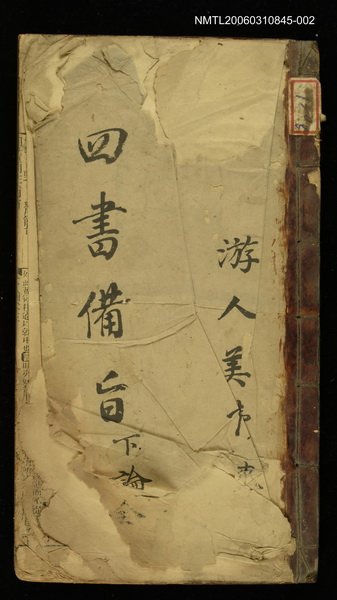 NMTL20060310845-002
游人美
四書備旨
下論
全